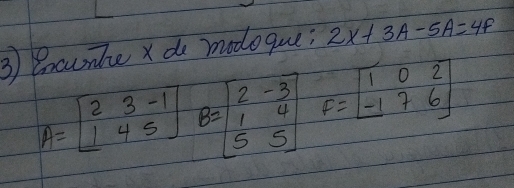 3) Encuntre x de modo que: 2x + 3A - 5A = 4F
A = [2 3 -1
1 4 5] B = [2 -3
1 4
5 5] F = [1 0 2
-1 7 6]